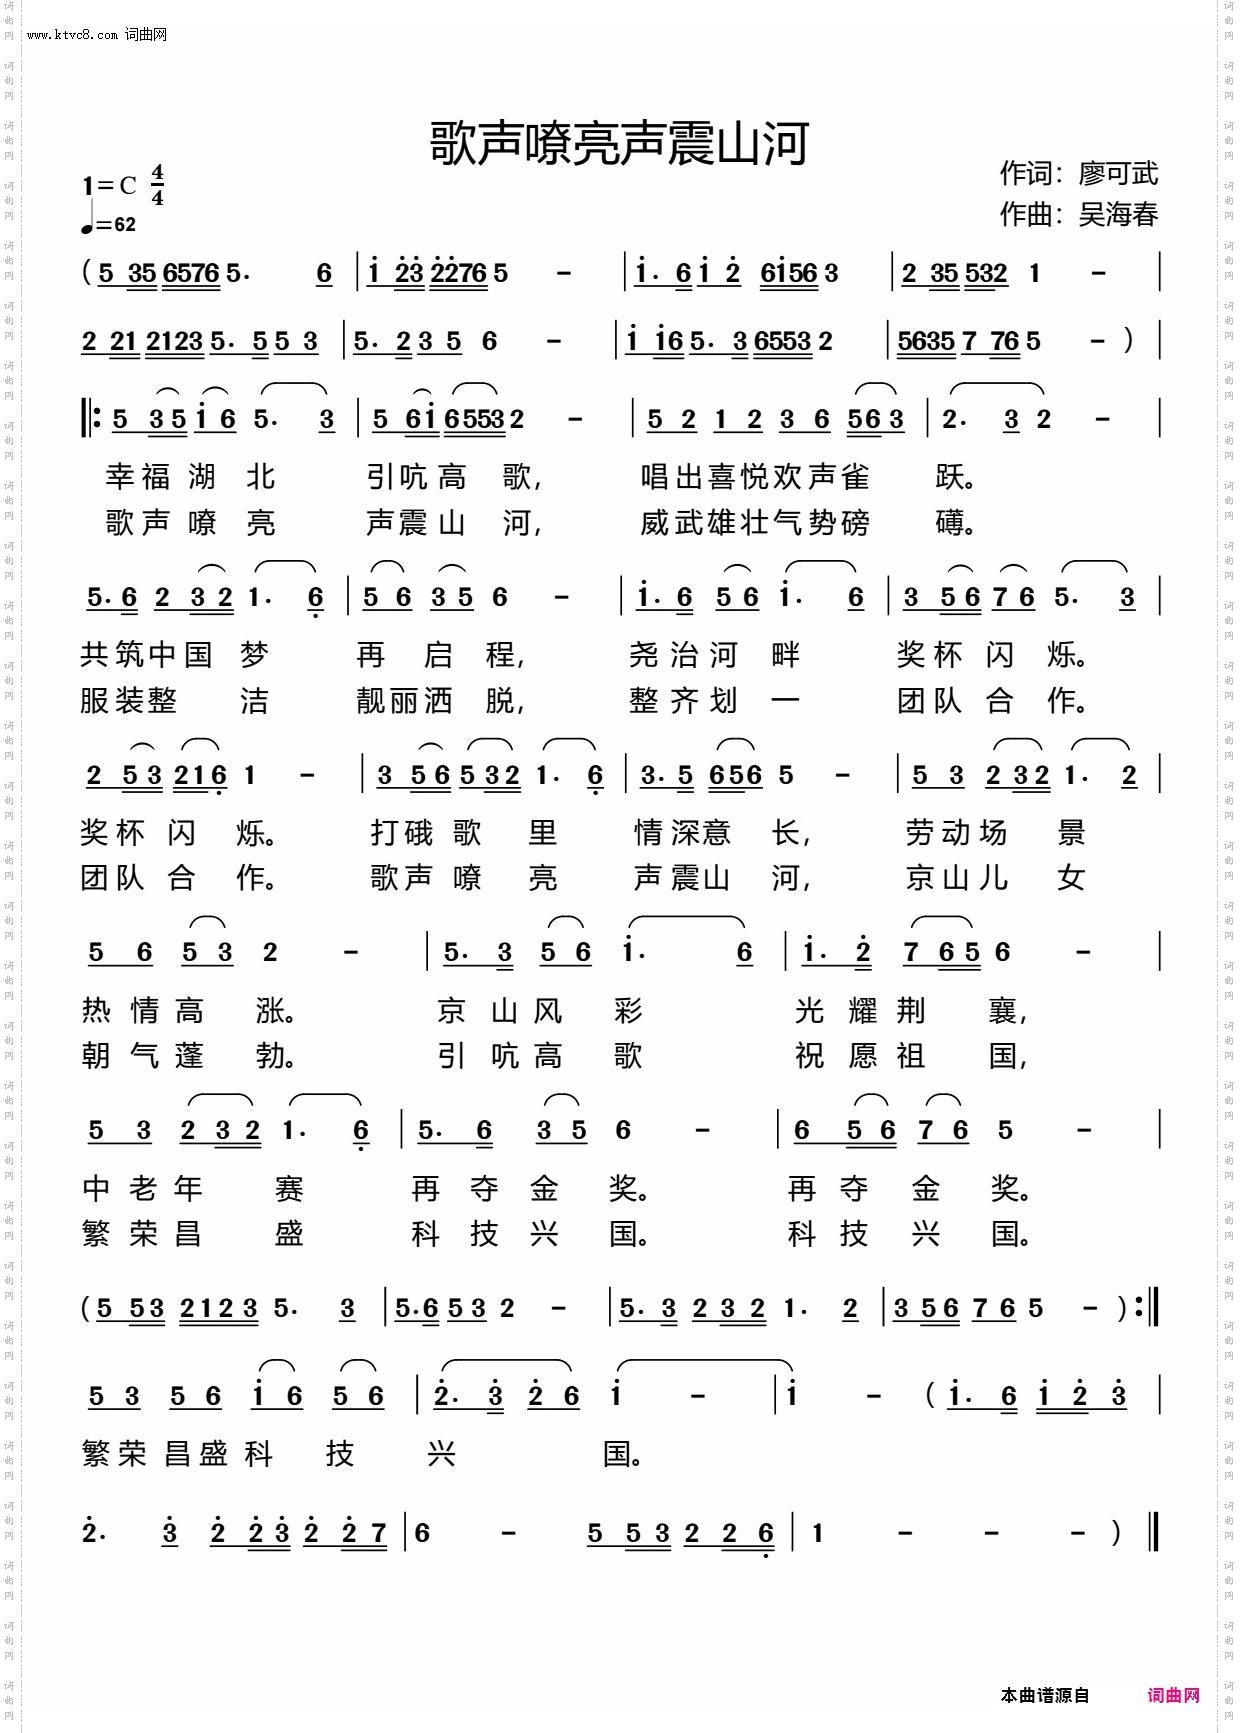 www.ktvc8.com 词曲网
歌声嘹亮声震山河
1=C 4/4
作词：廖可武
♩=62
作曲：吴海春
( 5 35 6576 5. 6 | i 2̇3̇ 2̇2̇76 5 - | i. 6 i 2̇ 6i56 3 | 2 35 532 1 - |
2 21 2123 5. 5 5 3 | 5. 2 3 5 6 - | i i6 5. 3 6553 2 | 5635 7 76 5 - ) |
‖: 5 35 i 6 5. 3 | 5 6i 6553 2 - | 5 2 1 2 3 6 563 | 2. 3 2 - |
幸福湖北 引吭高歌, 唱出喜悦欢声雀 跃。
歌声嘹亮 声震山河, 威武雄壮气势磅 礴。
5. 6 2 32 1. 6̣ | 5 6 3 5 6 - | i. 6 5 6 i. 6 | 3 56 7 6 5. 3 |
共筑中国梦 再启程, 尧治河畔 奖杯闪烁。
服装整洁 靓丽洒脱, 整齐划一 团队合作。
2 53 216̣ 1 - | 3 56 532 1. 6̣ | 3. 5 656 5 - | 5 3 232 1. 2 |
奖杯闪烁。 打硪歌里 情深意长, 劳动场景
团队合作。 歌声嘹亮 声震山河, 京山儿女
5 6 5 3 2 - | 5. 3 5 6 i. 6 | i. 2̇ 765 6 - |
热情高涨。 京山风彩 光耀荆襄,
朝气蓬勃。 引吭高歌 祝愿祖国,
5 3 232 1. 6̣ | 5. 6 3 5 6 - | 6 56 7 6 5 - |
中老年赛 再夺金奖。 再夺金奖。
繁荣昌盛 科技兴国。 科技兴国。
( 5 53 2123 5. 3 | 5.6 53 2 - | 5. 3 232 1. 2 | 356 76 5 - ) :‖
5 3 5 6 i 6 5 6 | 2̇. 3̇ 2̇ 6 i - | i - ( i. 6 i 2̇ 3̇ |
繁荣昌盛科技兴 国。
2̇. 3̇ 2̇ 2̇3̇ 2̇ 2̇7 | 6 - 5 53 2 26̣ | 1 - - - ) ‖
本曲谱源自 词曲网